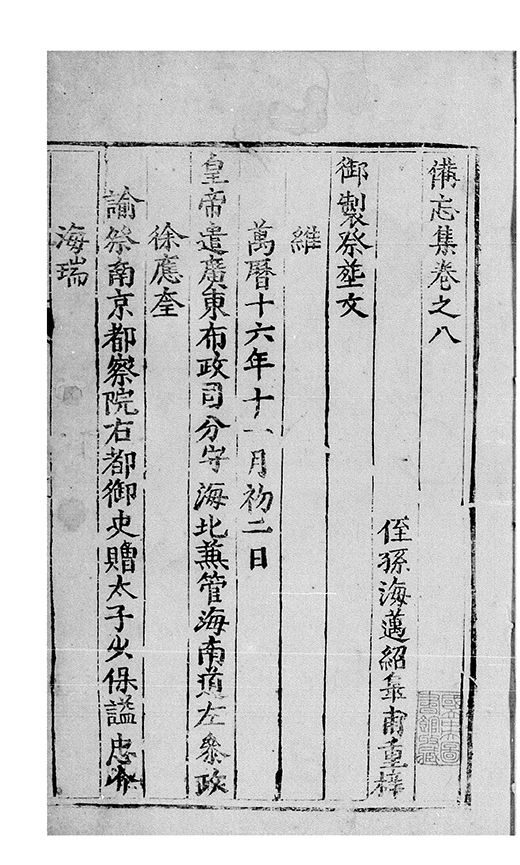 備忘集卷之八
侄孫海邁紹皐甫重梓
御製祭塟文
維
萬曆十六年十一月初二日
皇帝遣廣東布政司分守海北兼管海南道左叅政
徐應奎
諭祭南京都察院右都御史贈太子少保諡忠介
海瑞